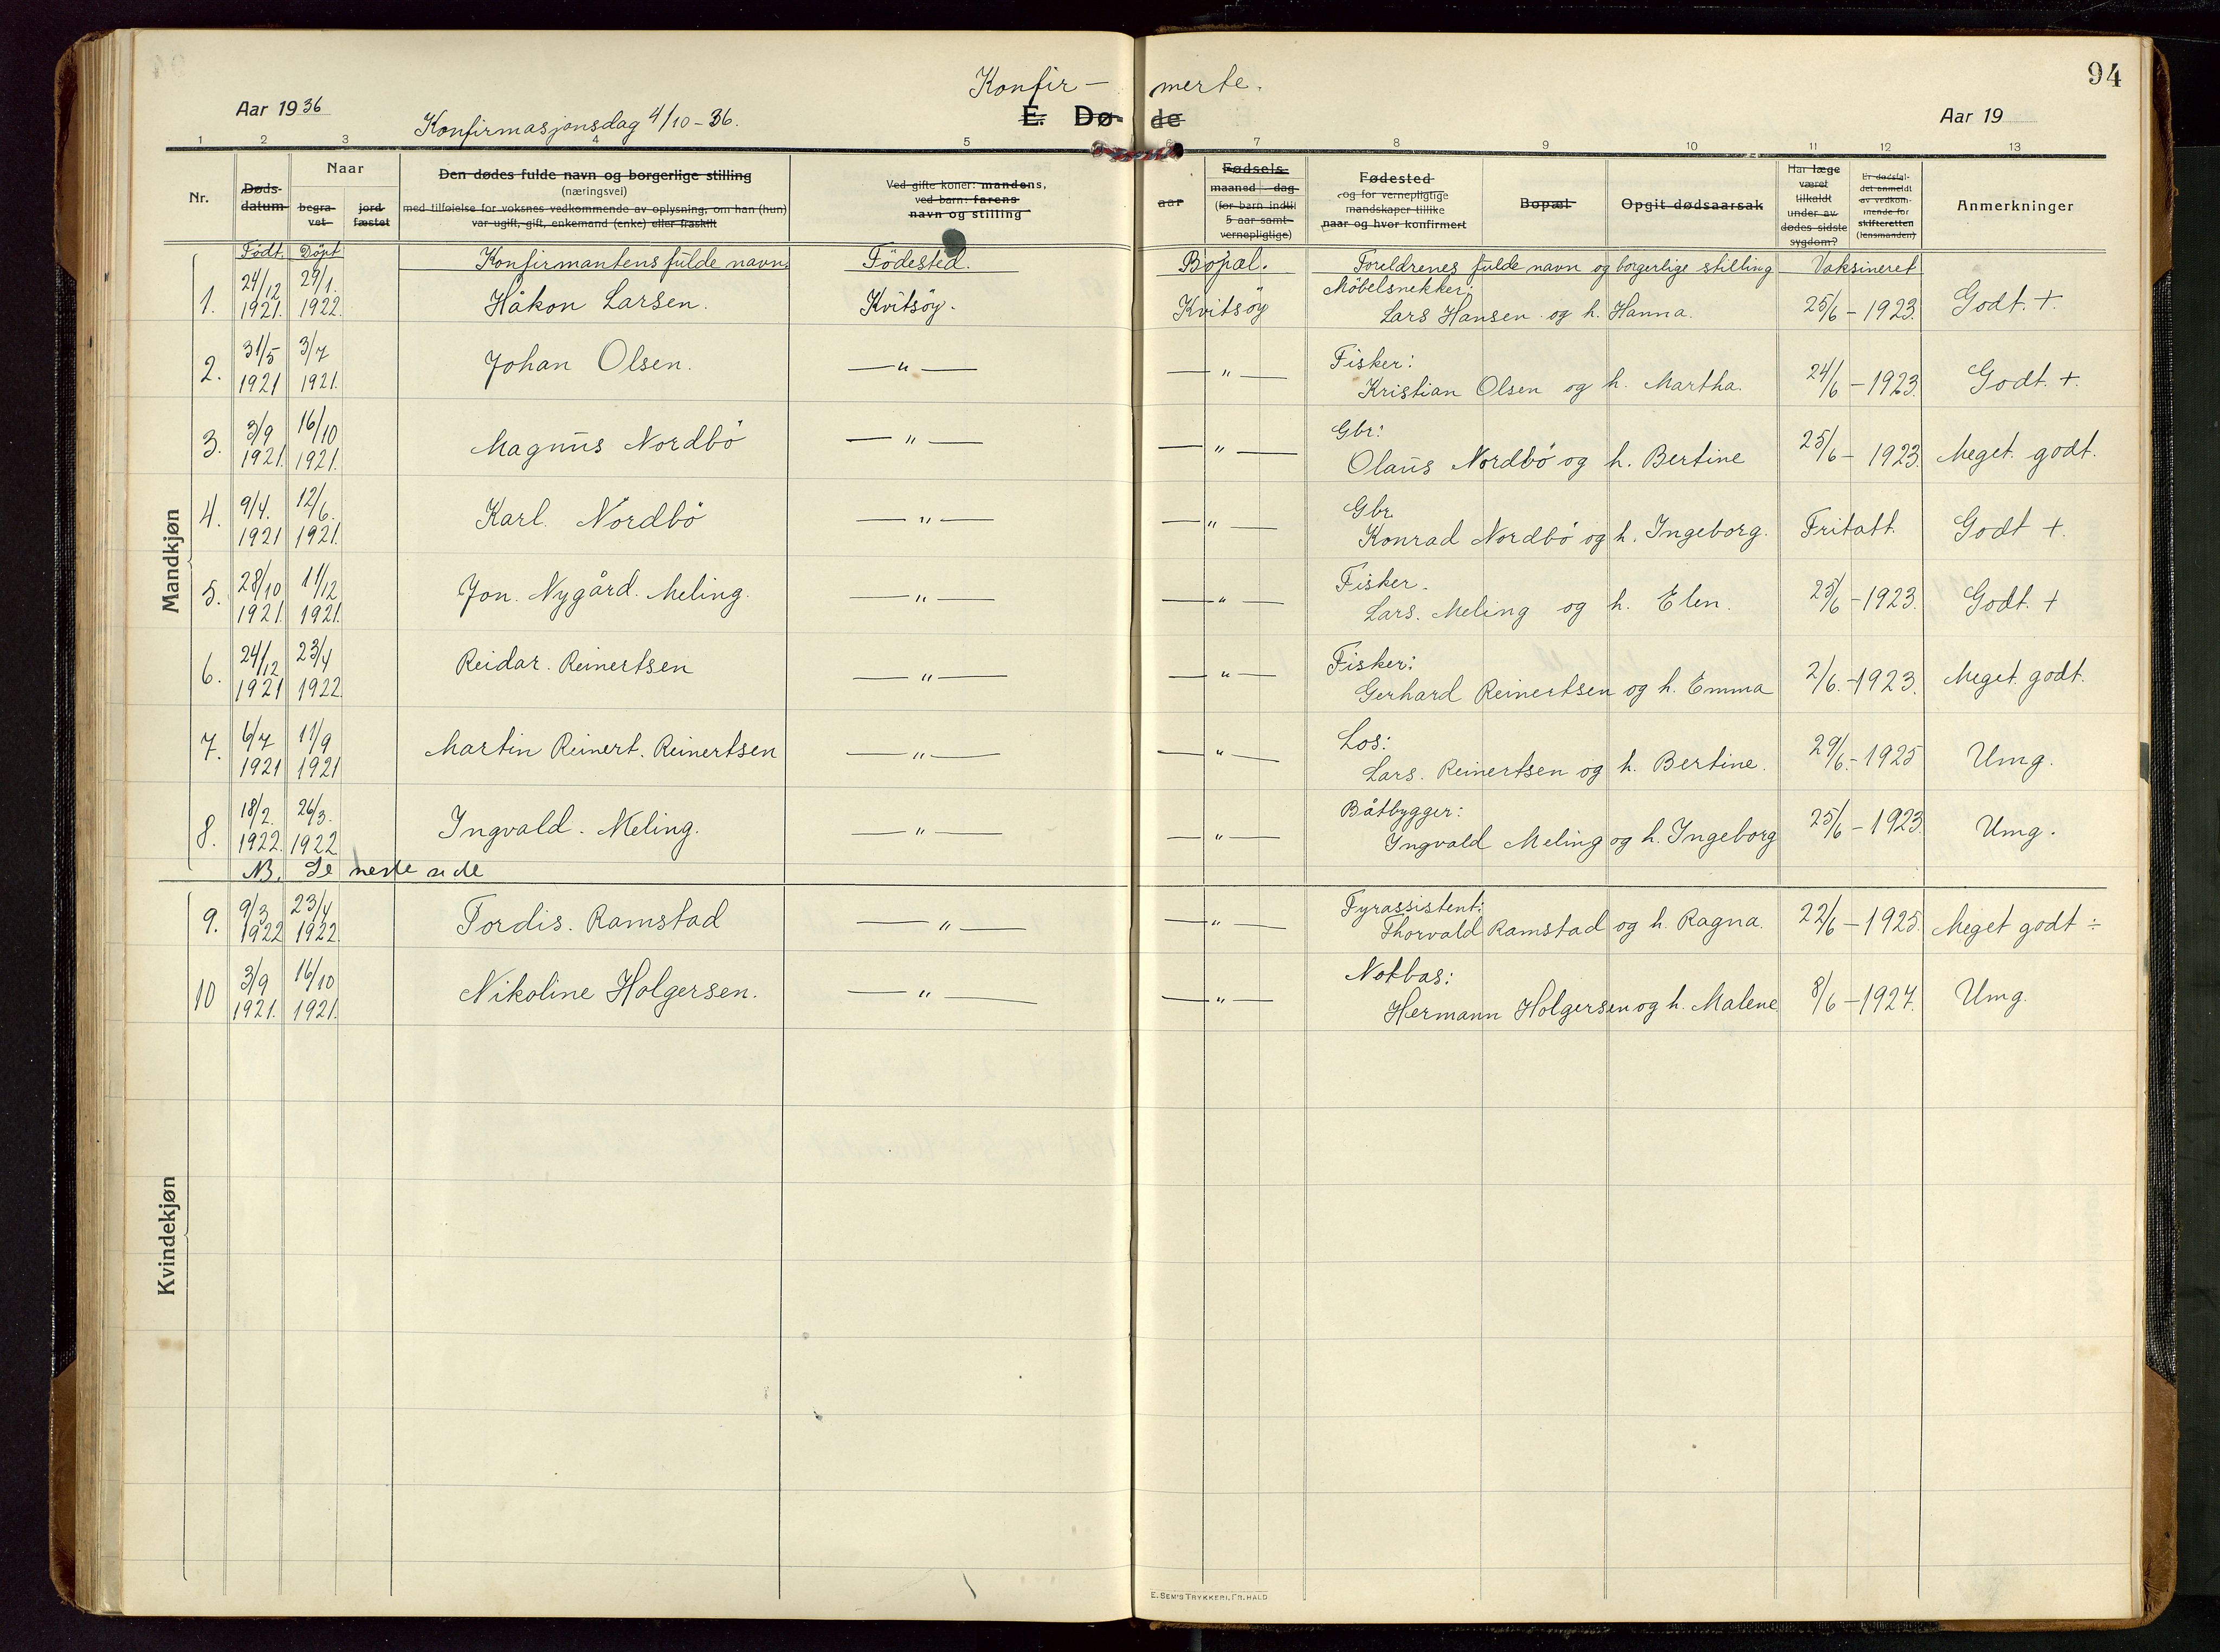 94
Konfir- merte.
Aar 1936
Konfirmasjonsdag 4/10-36.
E. Dø- de
Aar 19
1 2 3 4 5 6 7 8 9 10 11 12 13
Nr.
Døds-
datum
Naar
begra-
vet
jord-
fæstet
Den dødes fulde navn og borgerlige stilling
(næringsvei)
med tilføielse for voksnes vedkommende av oplysning, om han (hun)
var ugift, gift, enkemand (enke) eller fraskilt
Ved gifte koner: mandens,
ved barn: farens
navn og stilling
aar
Fødsels-
maaned dag
(for barn indtil
5 aar samt
vernepligtige)
Fødested
og for vernepligtige
mandskaper tillike
naar og hvor konfirmert
Bopæl
Opgit dødsaarsak
Har læge
været
tilkaldt
under av-
dødes sidste
sygdom?
Er dødsfal-
det anmeldt
av vedkom-
mende for
skifteretten
(lensmanden)
Anmerkninger
Født. Döpt Konfirmantens fulde navn. Födested. Bopæl. Foreldrenes fulde navn og borgerlige stilling Vaksineret
Mandkjøn
24/12 29/1. Möbelsnekker:
1. 1921. 1922. Håkon Larsen. Kvitsöy. Kvitsöy Lars Hansen og h. Hanna. 25/6 - 1923. Godt. +.
31/5 3/7 Fisker:
2. 1921 1921. Johan Olsen. — " — — " — Kristian Olsen og h. Martha. 24/6 - 1923. Godt. +.
3/9 16/10 Gbr:
3. 1921. 1921. Magnus Nordbö — " — — " — Olaus Nordbö og h. Bertine 25/6 - 1923. Meget godt.
9/4. 12/6. Gbr.
4. 1921 1921. Karl. Nordbö — " — — " — Konrad Nordbö og h. Ingeborg. Fritatt. Godt +.
28/10 11/12 Fisker.
5. 1921. 1921. Jon. Nygård. Meling. — " — — " — Lars. Meling og h. Elen. 25/6 - 1923. Godt. +
24/12 23/4 Fisker:
6. 1921 1922. Reidar. Reinertsen — " — — " — Gerhard Reinertsen og h. Emma 2/6. - 1923. Meget godt.
6/7 11/9 Los:
7. 1921 1921 Martin Reinert. Reinertsen — " — — " — Lars. Reinertsen og h. Bertine. 29/6. - 1925 Umg.
18/2. 26/3. Båtbygger:
8. 1922. 1922 Ingvald. Meling. — " — — " — Ingvald Meling og h. Ingeborg 25/6 - 1923. Umg.
NB. Se neste side
Kvindekjøn
9/3 23/4 Fyrassistent:
9. 1922 1922. Tordis. Ramstad — " — — " — Thorvald Ramstad og h. Ragna. 22/6 - 1925. Meget godt ÷
3/9 16/10 Notbas:
10 1921. 1921. Nikoline Holgersen. — " — — " — Hermann Holgersen og h. Malene 8/6 - 1927. Umg.
E. SEM'S TRYKKERI, FR.HALD